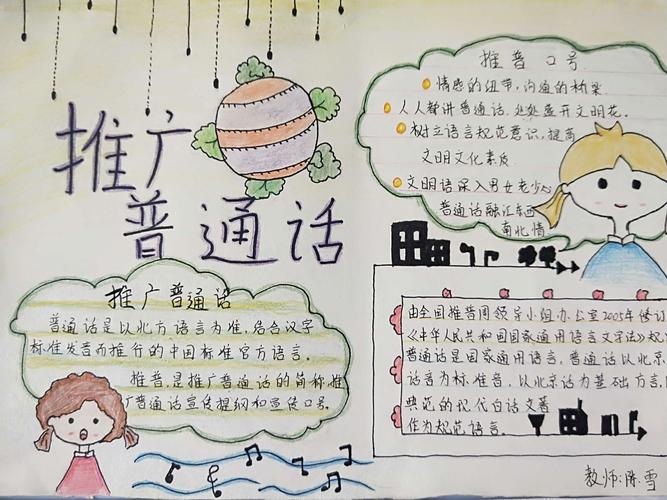 推广
普通话
推广普通话
普通话是以北方语言为准,结合汉字
标准发音而推行的中国标准官方语言。
推普,是推广普通话的简称推
广普通话宣传提纲和宣传口号。
推普口号
情感的纽带,沟通的桥梁
人人都讲普通话,处处盛开文明花。
树立语言规范意识,提高
文明文化素质
文明语深入男女老少心
普通话融汇东西
南北情
由全国推普周领导小组办公室2005年修订
《中华人民共和国国家通用语言文字法》规
普通话是国家通用语言,普通话以北京
话音为标准音,以北京话为基础方言,
典范的现代白话文著
作为规范语言。
教师:陈雪